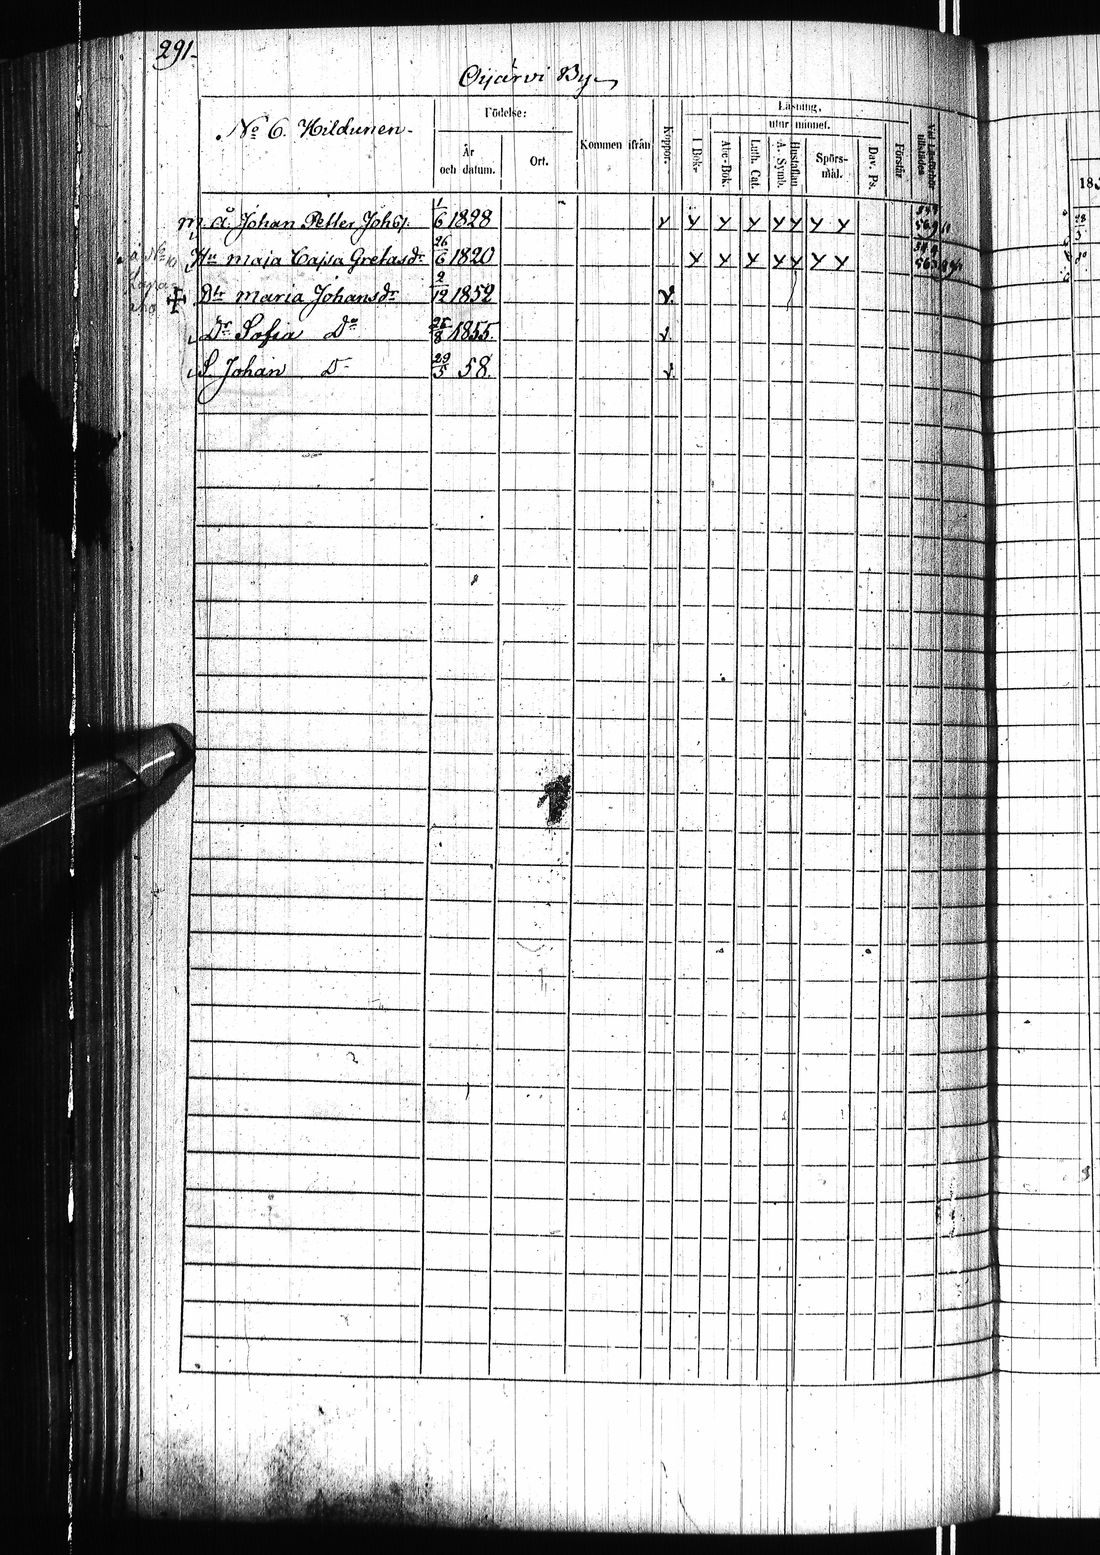 291.
Oijärvi By
No 6. Hildunen.
Födelse:
År och datum.
Ort.
Kommen ifrån
Koppor.
Läsning,
utur minnet.
I Bok.
Abc-Bok.
Luth. Cat.
A. Symb.
Hustaflan
Spörs-mål.
Dav. Ps.
Förstår
Vid Läsförhör tillstädes
183
m Å. Johan Petter Johss. 1/6 1828 v y y y y y y y
Hu Maja Cajsa Gretasdr 26/6 1820 y y y y y y y
Dtr Maria Johansdr 2/12 1852 v.
Dr Sofia Do 25/8 1855. v
S. Johan D 29/5 58. v.